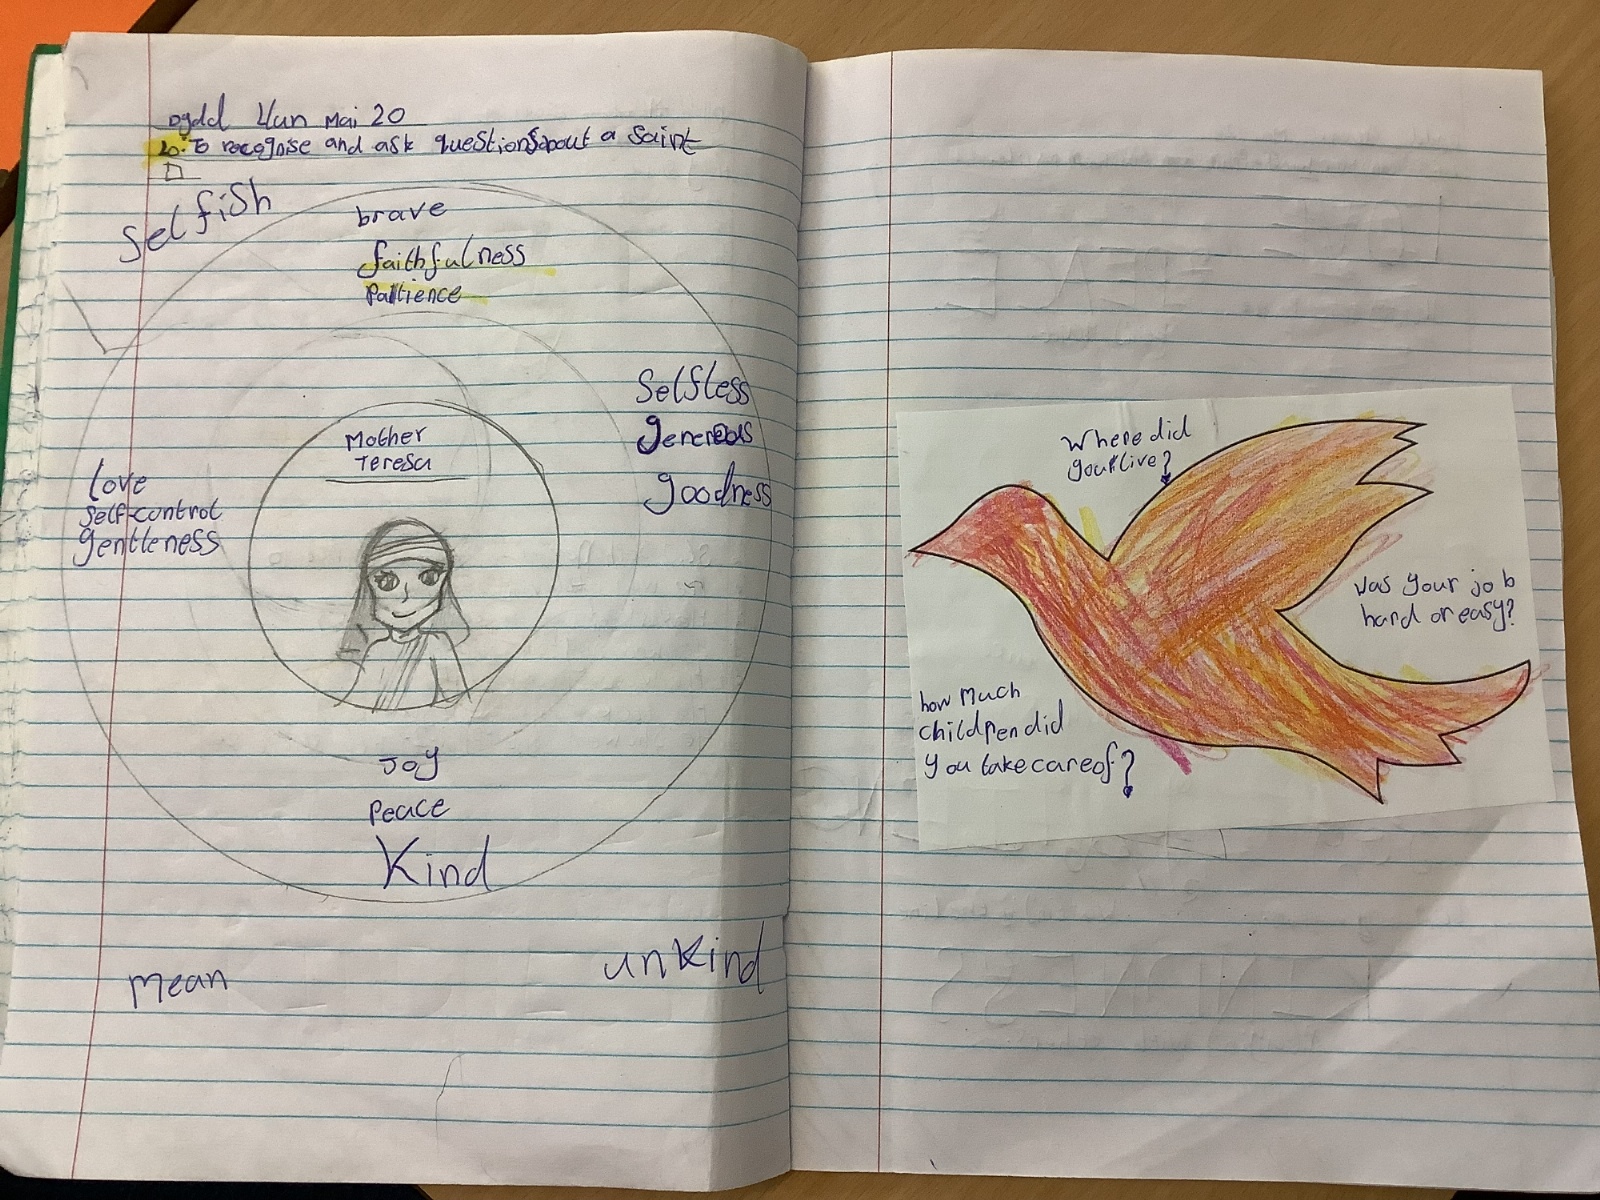 Dydd Llun Mai 20
Lo: To recognise and ask questions about a saint
Selfish
brave
faithfulness
Patience
Selfless
generous
goodness
Mother
Teresa
love
self-control
gentleness
Joy
Peace
Kind
mean
unkind
Where did
you live?
Was your job
hard or easy?
how much
children did
you take care of?